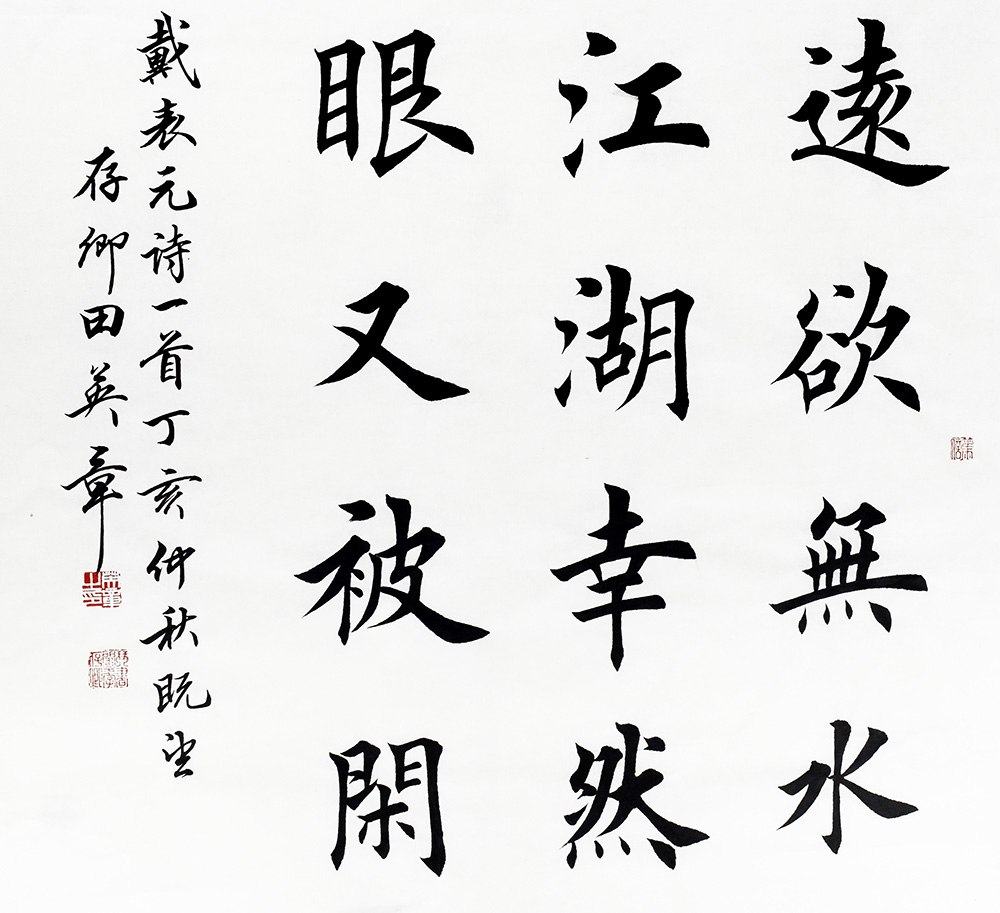 遠欲無水
江湖幸然
眼又被閑
戴表元诗一首丁亥仲秋既望
存卿田英章